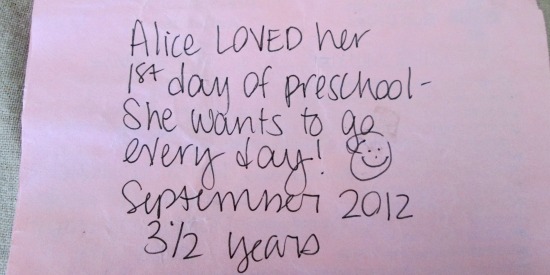 Alice LOVED her
1st day of preschool-
She wants to go
every day! ☺
September 2012
3 1/2 years